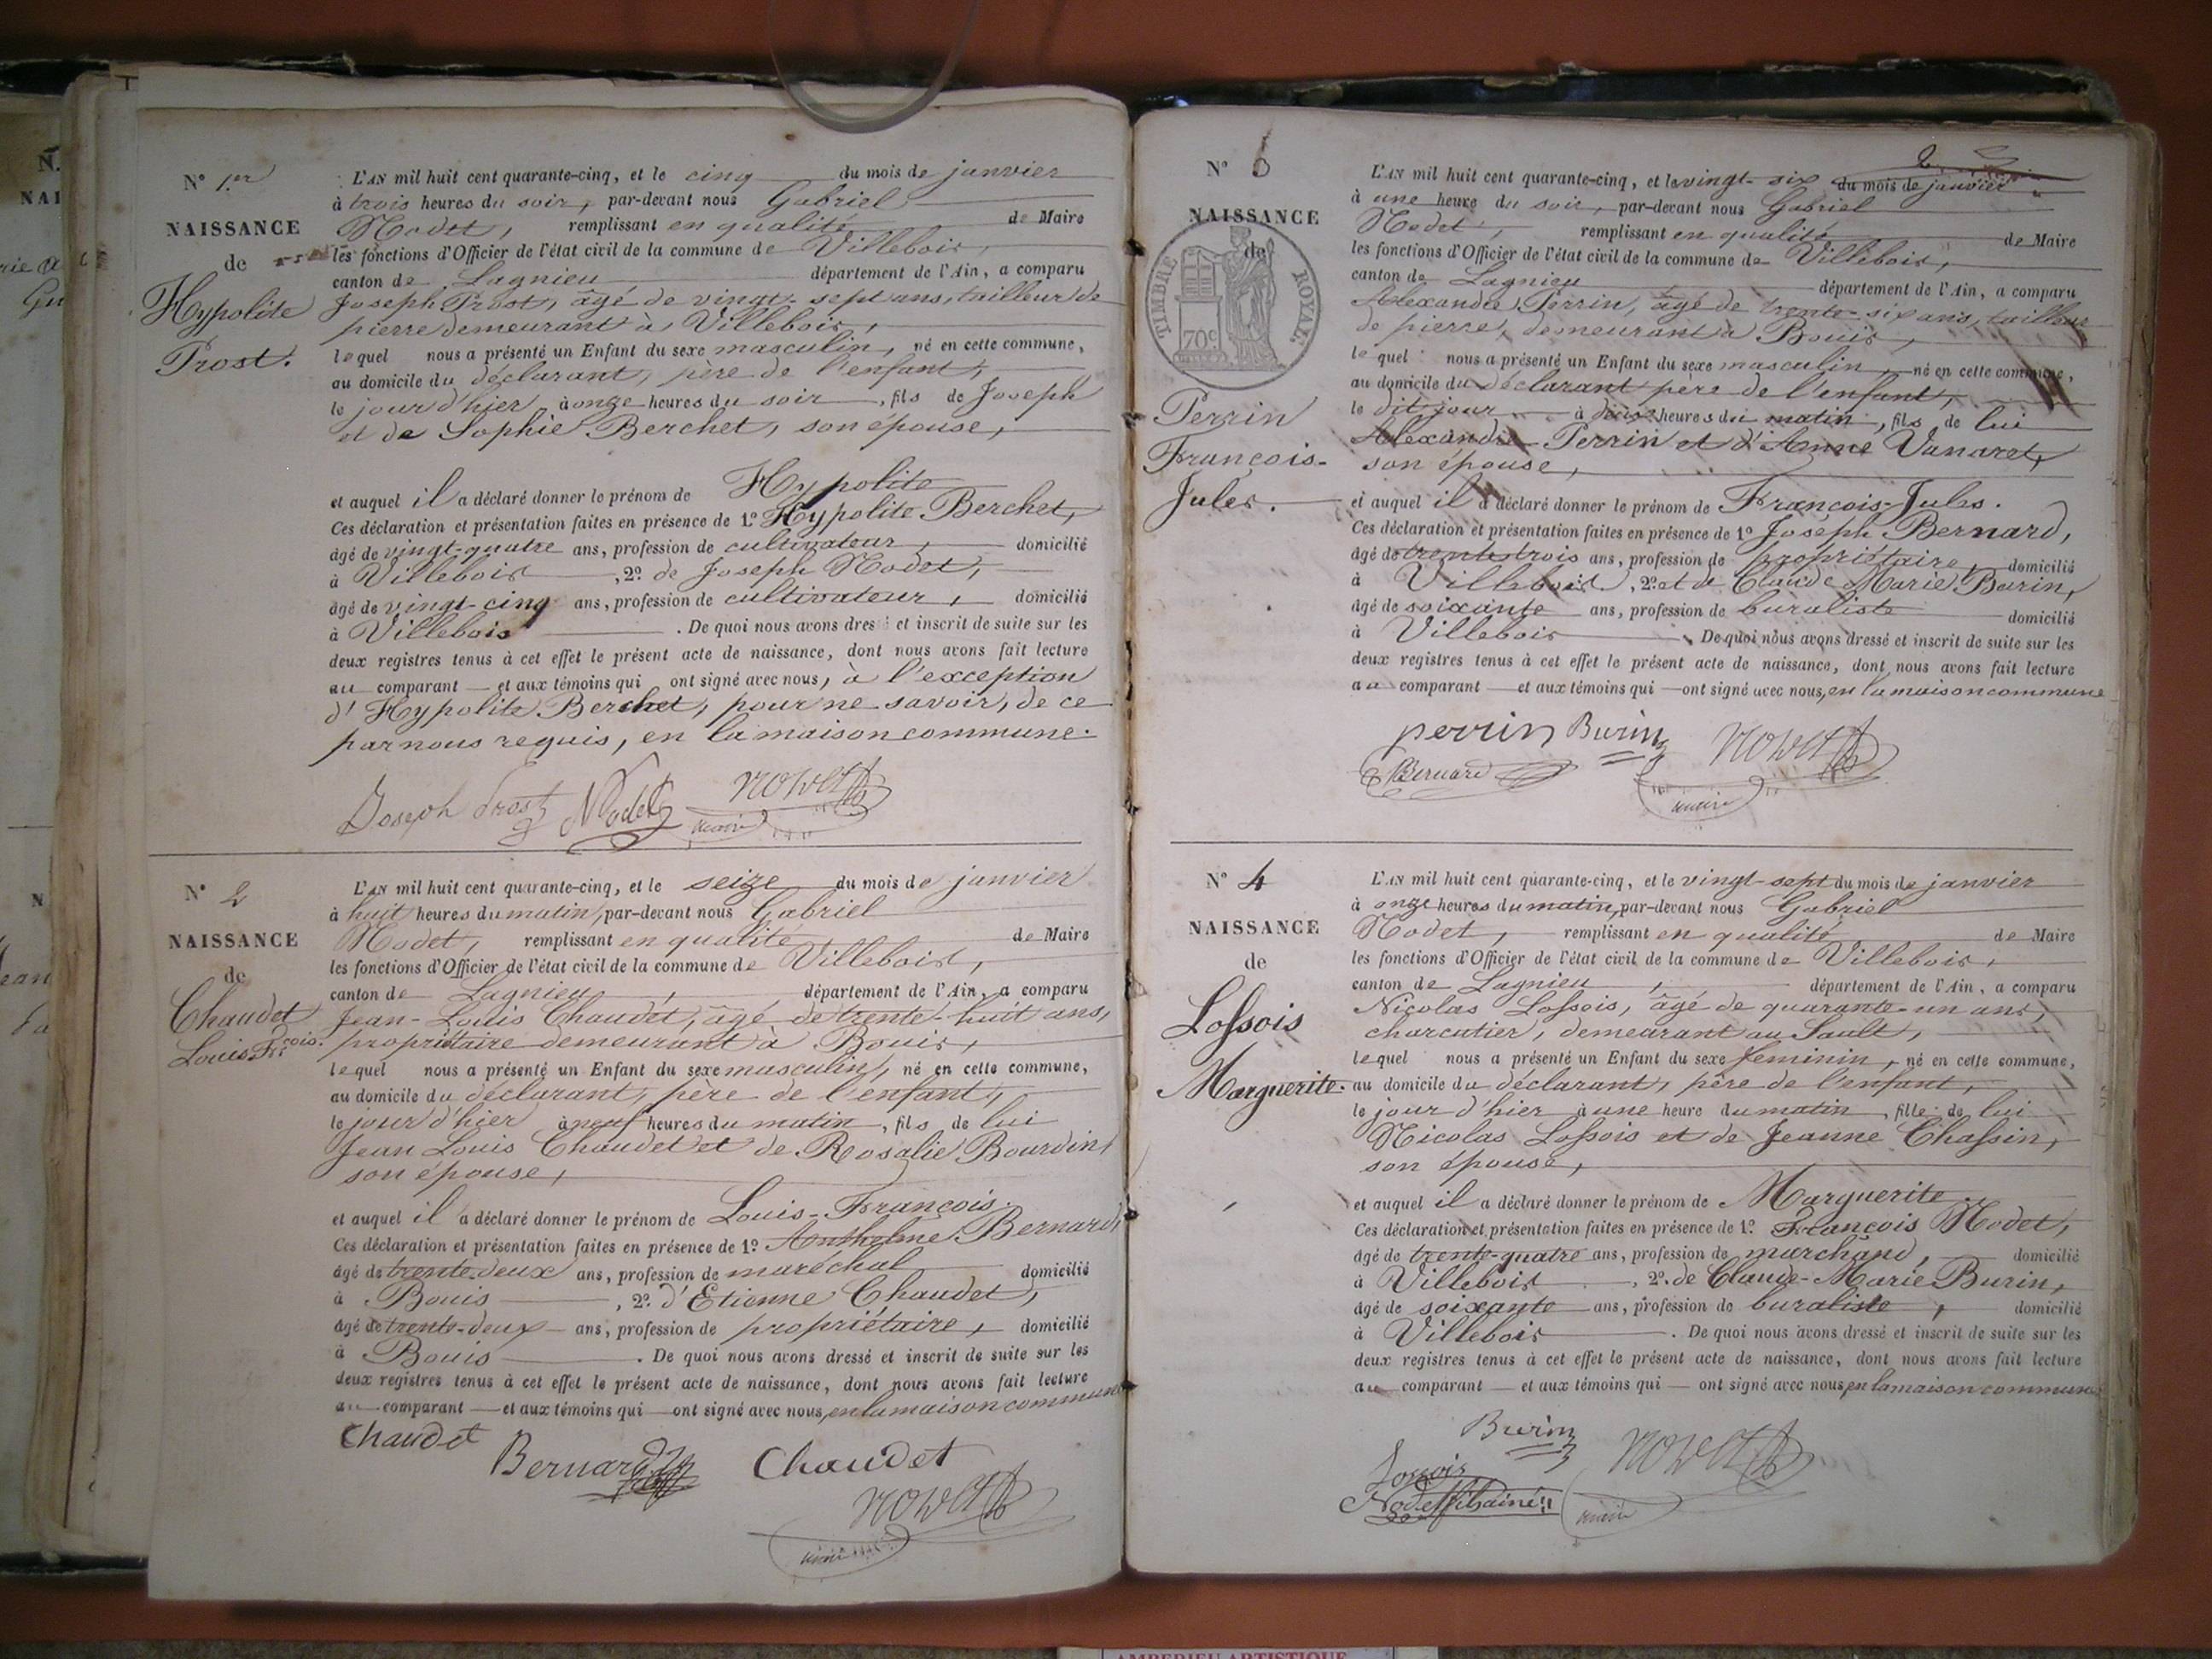 N° 1.er
NAISSANCE
de
Hypolite
Prost.
L'AN mil huit cent quarante-cinq, et le cinq du mois de janvier
à trois heures du soir, par-devant nous Gabriel
Nodet, remplissant en qualité de Maire
les fonctions d'Officier de l'état civil de la commune de Villebois,
canton de Lagnieu département de l'Ain, a comparu
Joseph Prost, âgé de vingt-sept ans, tailleur de
pierre demeurant à Villebois,
lequel nous a présenté un Enfant du sexe masculin, né en cette commune,
au domicile du déclarant, père de l'enfant,
le jour d'hier, à onze heures du soir, fils de Joseph
et de Sophie Berchet, son épouse,
et auquel il a déclaré donner le prénom de Hypolite
Ces déclaration et présentation faites en présence de 1.° Hypolite Berchet,
âgé de vingt-quatre ans, profession de cultivateur, domicilié
à Villebois, 2.° de Joseph Nodet,
âgé de vingt-cinq ans, profession de cultivateur, domicilié
à Villebois. De quoi nous avons dressé et inscrit de suite sur les
deux registres tenus à cet effet le présent acte de naissance, dont nous avons fait lecture
au comparant et aux témoins qui ont signé avec nous, à l'exception
d'Hypolite Berchet, pour ne savoir, de ce
par nous requis, en la maison commune.
Joseph Prost Nodet Nodet
maire
N° 2
NAISSANCE
de
Chaudet
Louis-Fr.çois.
L'AN mil huit cent quarante-cinq, et le seize du mois de janvier
à huit heures du matin, par-devant nous Gabriel
Nodet, remplissant en qualité de Maire
les fonctions d'Officier de l'état civil de la commune de Villebois,
canton de Lagnieu, département de l'Ain, a comparu
Jean-Louis Chaudet, âgé de trente-huit ans,
propriétaire demeurant à Bouis,
lequel nous a présenté un Enfant du sexe masculin, né en cette commune,
au domicile du déclarant, père de l'enfant,
le jour d'hier à neuf heures du matin, fils de lui
Jean Louis Chaudet et de Rosalie Bourdin,
son épouse,
et auquel il a déclaré donner le prénom de Louis-François.
Ces déclaration et présentation faites en présence de 1.° Anthelme Bernard,
âgé de trente-deux ans, profession de maréchal domicilié
à Bouis, 2.° d'Etienne Chaudet,
âgé de trente-deux ans, profession de propriétaire, domicilié
à Bouis. De quoi nous avons dressé et inscrit de suite sur les
deux registres tenus à cet effet le présent acte de naissance, dont nous avons fait lecture
au comparant et aux témoins qui ont signé avec nous, en la maison commune
Chaudet Bernard Chaudet
Nodet
maire
N° 3
NAISSANCE
de
TIMBRE ROYAL
70c
Perrin
François-
Jules.
L'AN mil huit cent quarante-cinq, et le vingt-six du mois de janvier
à une heure du soir, par-devant nous Gabriel
Nodet, remplissant en qualité de Maire
les fonctions d'Officier de l'état civil de la commune de Villebois,
canton de Lagnieu département de l'Ain, a comparu
Alexandre Perrin, âgé de trente-six ans, tailleur
de pierre, demeurant à Bouis,
lequel nous a présenté un Enfant du sexe masculin, né en cette commune,
au domicile du déclarant père de l'enfant,
le dit jour à heures du matin, fils de lui
Alexandre Perrin et d'Anne Vanaret,
son épouse,
et auquel il a déclaré donner le prénom de François-Jules.
Ces déclaration et présentation faites en présence de 1° Joseph Bernard,
âgé de trente-trois ans, profession de propriétaire, domicilié
à Villebois, 2.° et de Claude Marie Burin,
âgé de soixante ans, profession de buraliste domicilié
à Villebois. De quoi nous avons dressé et inscrit de suite sur les
deux registres tenus à cet effet le présent acte de naissance, dont nous avons fait lecture
au comparant et aux témoins qui ont signé avec nous, en la maison commune
perrin Burin Nodet
Bernard maire
N° 4
NAISSANCE
de
Lossois
Marguerite.
L'AN mil huit cent quarante-cinq, et le vingt-sept du mois de janvier
à onze heures du matin, par-devant nous Gabriel
Nodet, remplissant en qualité de Maire
les fonctions d'Officier de l'état civil de la commune de Villebois,
canton de Lagnieu, département de l'Ain, a comparu
Nicolas Lossois, âgé de quarante-un ans,
charcutier, demeurant au Sault,
lequel nous a présenté un Enfant du sexe féminin, né en cette commune,
au domicile du déclarant, père de l'enfant,
le jour d'hier à une heure du matin, fille de lui
Nicolas Lossois et de Jeanne Chassin,
son épouse,
et auquel il a déclaré donner le prénom de Marguerite.
Ces déclaration et présentation faites en présence de 1.° François Nodet,
âgé de trente-quatre ans, profession de marchand, domicilié
à Villebois, 2.° de Claude-Marie Burin,
âgé de soixante ans, profession de buraliste, domicilié
à Villebois. De quoi nous avons dressé et inscrit de suite sur les
deux registres tenus à cet effet le présent acte de naissance, dont nous avons fait lecture
au comparant et aux témoins qui ont signé avec nous, en la maison commune
Burin
Lossois Nodet
Nodet fils ainé maire
AMBERIEU ARTISTIQUE